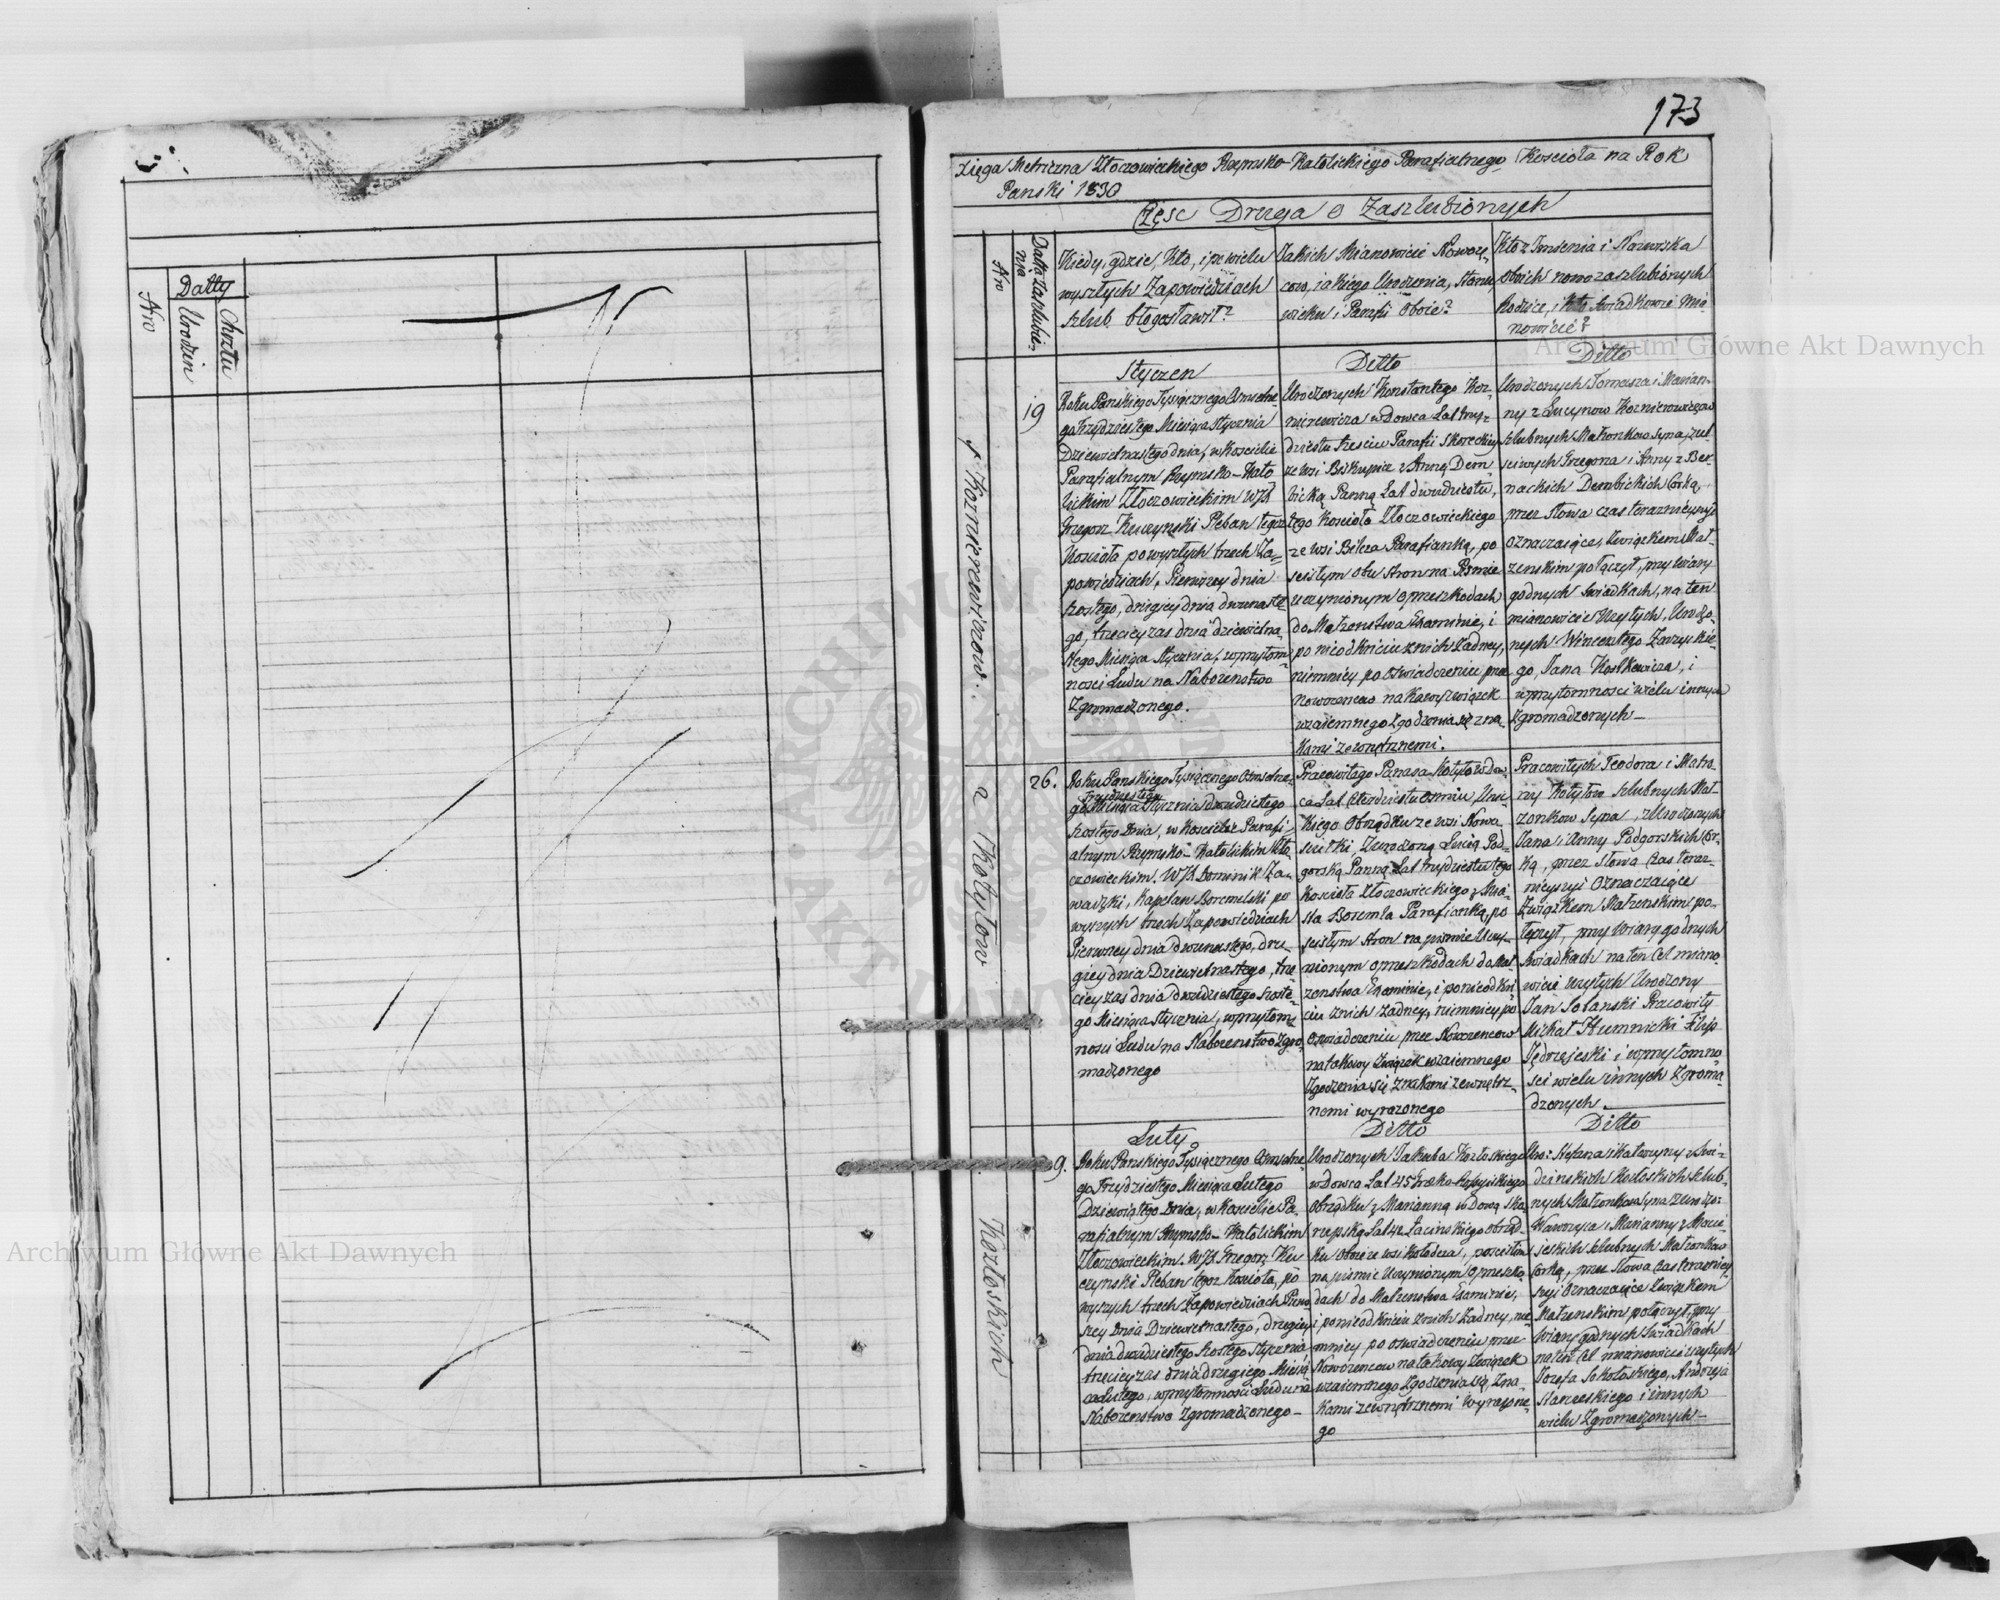 Nro
Datty
Urodzin
Chrztu
173
Xięga Metriczna Złoczowieckiego Rzymsko-Katolickiego Parafialnego Koscioła na Rok
Panski 1830
Częsc Druga o Zaszlubionych
Nro
Datta Zaszlubie-
nia
Kiedy, gdzie, Kto, i po wielu
wyszłych Zapowiedziach
szlub błogosławił?
Jakich Mianowicie Nowożę-
cow, jakiego Urodzenia, Stanu
wieku i Parafii Oboie?
Kto z Imienia i Nazwiska
oboich nowozaszlubionych
Rodzice, i kto Swiadkowie Mia-
nowicie?
Styczen
Ditto
Ditto
Kozmierewiczow.
19
Roku Panskiego Tysiącznego Osmsetne
go Trzydziestego Miesiąca Stycznia
Dziewietnastego dnia, w Kosciele
Parafialnym Rzymsko-Kato
lickim Złoczowieckim WJX
Grzegorz Kuczynski Pleban tegoz
Koscioła po wyszłych trzech Za-
powiedziach, Pierwszey dnia
szostego, drugiey dnia dwunaste-
go, trzeciey zas dnia dziewietna-
stego Miesiąca Stycznia, w przytom-
nosci Ludu na Nabozenstwo
Zgromadzonego.
Urodzonych Konstantego Koz-
mierewicza wdowca Lat trzy-
dziestu trzeciu Parafii Skoreckiey
ze wsi Biskupiz z Anną Dem-
bicką Panną Lat dwudziestu,
tego Koscioła Złoczowieckiego
ze wsi Bilcza Parafianką, po
scisłym obu stron na Pismie
uczynionym o przeszkodach
do Małzenstwa Examinie, i
po nieodkriciu znich żadney,
niemniey po oswiadczeniu prze
Nowozencow na takowy związek
wzaiemnego Zgodzenia się zna-
kami zewnętrznemi.
Urodzonych Tomasza i Marian-
ny z Lucynow Kozmierewiczow
szlubnych Małzonkow Syna, z ucz-
ciwych Grzegorza i Anny z Ber-
nackich Dembickich Corką
przez słowa czas teraznieyszy
oznaczaiące, Związkiem Mał-
zenskim połączył, przy wiary
godnych Swiadkach, na ten
mianowicie Uzytych, Urodzo-
nych Wincentego Zarzyckie-
go, Jana Kostkiewicza, i
w przytomnosci wielu innych
Zgromadzonych-
Kotyłow
26.
Roku Panskiego Tysiącznego Osmsetne-
go trzydziestego Miesiąca Stycznia dwudziestego
szostego Dnia, w Kosciele Parafi-
alnym Rzymsko-Katolickim Zło-
czowieckim. WJX Dominik Za-
wadzki, Kapelan Boremelski po
wyszłych trzech Zapowiedziach
Pierwszey dnia dwunastego, dru-
giey dnia Dziewietnastego, trze-
ciey zas dnia dwudziestego szoste-
go Miesiąca Stycznia, w przytom-
nosci Ludu na Nabozenstwo Zgro-
madzonego
Pracowitego Panasa Kotyło wdow
ca Lat Czterdziestu osmiu, Unic
kiego Obrządku ze wsi Nowo
siułki Zurodzoną Lucią Pod-
gorską Panną Lat trzydziestu tego
Koscioła Złoczowieckiego z Mia-
sta Boremla Parafianką, po
scisłym stron na pismie Uczy-
nionym o przeszkodach do Mał-
zenstwa Examinie, i po nieodkri-
ciu znich żadney, niemniey po
oswiadczeniu prze Nowozencow
na takowy Związek wzaiemnego
Zgodzenia się Znakami zewnętrz-
nemi wyrazonego
Pracowitych Teodora i Matro-
ny Kotyłow szlubnych Mał-
zonkow Syna, z Urodzonych
Jana i Anny Podgorskich Cor-
ką, przez słowa czas teraz-
nieyszy Oznaczaiące
Związkiem Małzenskim po-
łączył, przy Wiary godnych
Swiadkach na ten Cel miano-
wicie uzytych Urodzony
Jan Sobanski Pracowity
Michał Stumnicki Filip
Jędrzejeski i w przytomno-
sci wielu innych Zgroma-
dzonych
Luty
Ditto
Ditto
Kozłoskich
9.
Roku Panskiego Tysiącznego Osmsetne
go Trzydziestego Miesiąca Lutego
Dziewiątego Dnia, w Kosciele Pa-
rafialnym Rzymsko-Katolickim
Złoczowieckim. WJX Grzegorz Ku-
czynski Pleban tegoz Koscioła, po
wyszych trzech Zapowiedziach Pierw-
szey Dnia Dziewietnastego, drugiey
dnia dwudziestego szostego Stycznia
trzeciey zas dnia drugiego Miesią
ca Lutego, w przytomnosci Ludu na
Nabozenstwo Zgromadzonego-
Urodzonych Jakuba Kozłoskiego
wdowca Lat 45 Greko-Rossyiskiego
obrządku z Marianną wdową Ska
rzepską Lat 42 Łacinskiego obrząd-
ku oboie ze wsi Kołodeza, po scisłim
na pismie Uczynionym o przeszko-
dach do Małzenstwa Examinie,
i po nieodkriciu znich żadney, nie
mniey po oswiadczeniu prze
Nowozencow na takowy Związek
wzaiemnego Zgodzenia się Zna-
kami zewnętrznemi Wyrazone-
go
Uro: Stefana i Katarzyny z Swi-
dzinskich Kozłoskich szlub-
nych Małzonkow Syna z Urodzo:
Wawrzyca i Marianny z Macie-
jeskich szlubnych Małzonkow
Corką, przez słowa czas terazniey-
szy Oznaczaiące Związkiem
Małzenskim połączył, przy
Wiary godnych Swiadkach
na ten Cel mianowicie uzytych
Jozefa Sokołoskiego, Andrzeja
Starzeskiego i innych
wielu Zgromadzonych-
Archiwum Główne Akt Dawnych
Archiwum Główne Akt Dawnych